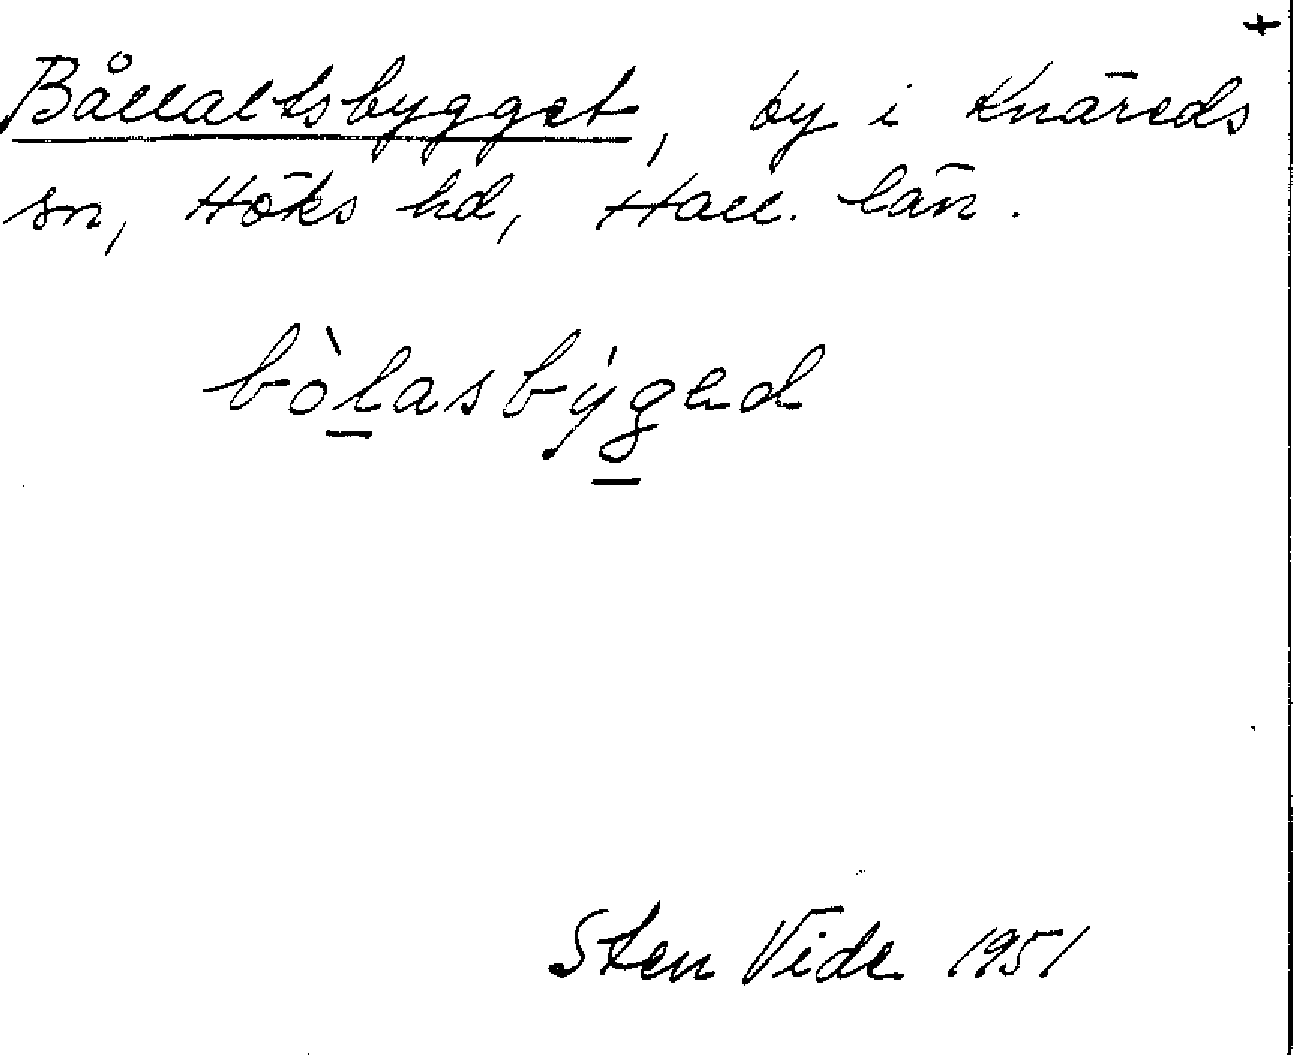 +
Bållaltsbygget, by i Knäreds
sn, Höks hd, Hall. län.
bòl̲asbýg̲ad
Sten Vide 1951